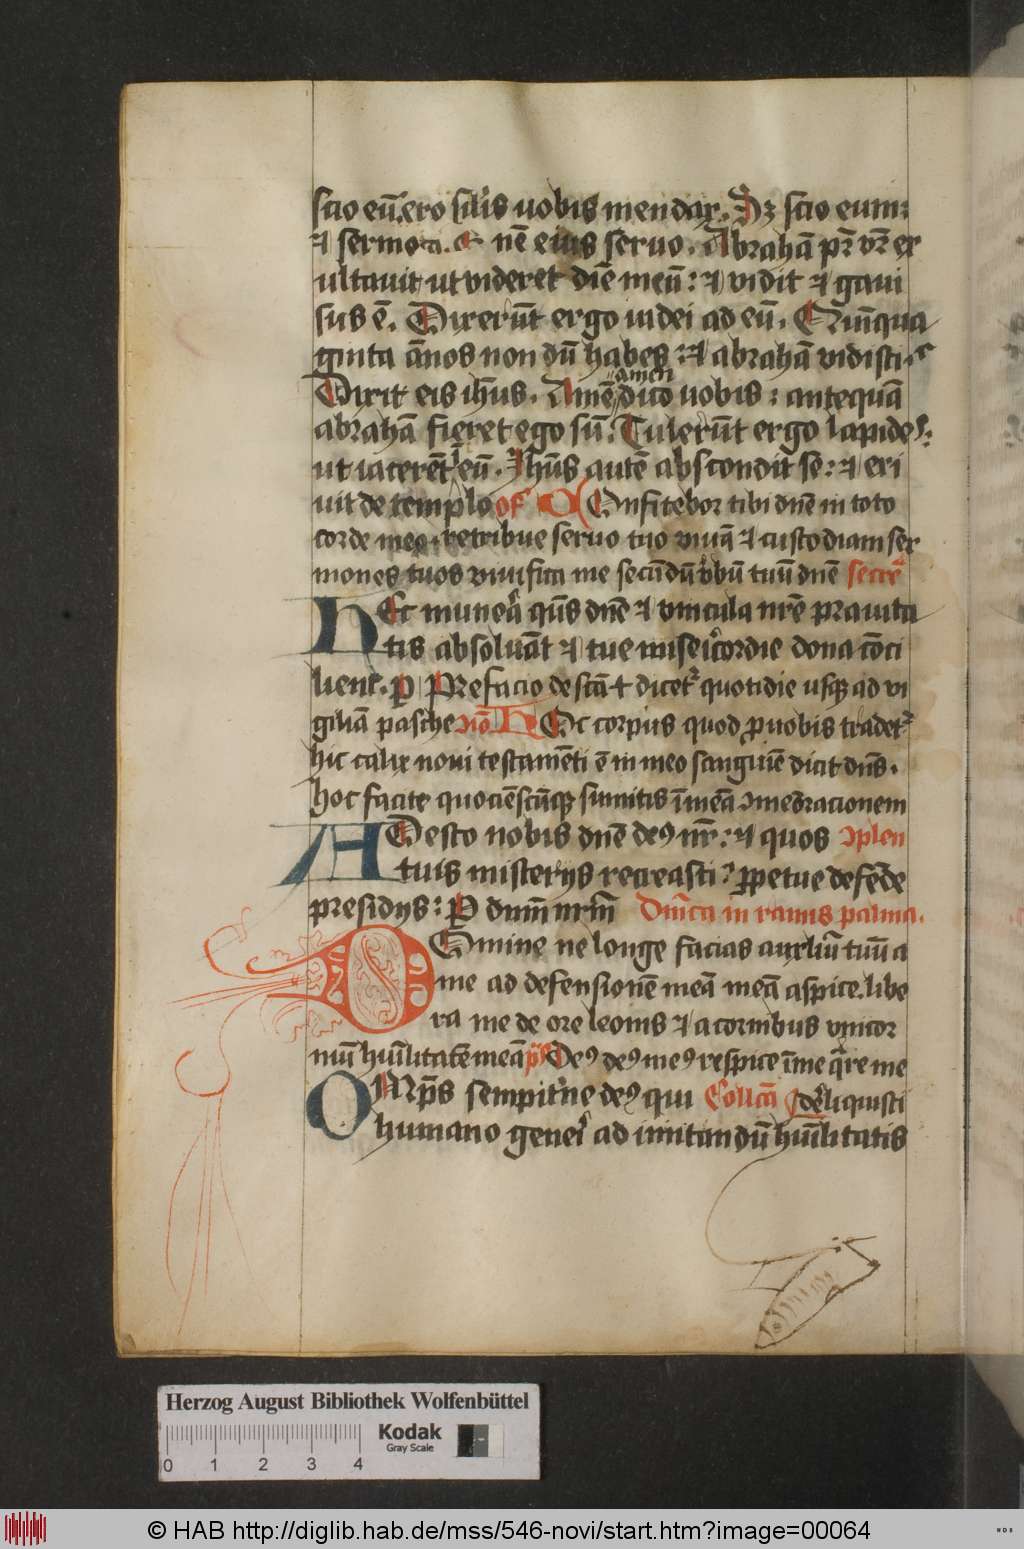 scio eū. ero sil̄is uobis mendax. Sꝫ scio eum:
⁊ sermonē eius seruo. Abrahā pr̄ vr̄ ex
ultauit ut videret diē meū: ⁊ vidit ⁊ gaui
sus ē. Dixerūt ergo iudei ad eū. Quīnqua
ginta ānos non dū habes: ⁊ abrahā vidisti.
Dixit eis ih̄us. Amē amen dico uobis: anteqūā
abrahā fieret ego sū. Tulerūt ergo lapides:
ut iacerēt ī eū. Ih̄us autē abscondit se: ⁊ exi
uit de templo of Cōnfitebor tibi dn̄e in toto
corde meo. retribue seruo tuo viuā ⁊ custodiam ser
mones tuos viuifica me secūdū ūbū tuū dn̄e secre
HEc munera qūs dn̄e ⁊ vincula nr̄e prauita
tis absoluāt ⁊ tue misericordie dona cōci
lient. p̄ Prefacio de scā + dicet᷑ quotidie usqꝫ ad vi
giliā pasche cōio Hoc corpus quod p uobis tradet᷑
hic calix noui testamēti ē in meo sanguīe dicit dn̄s.
hoc facite quociēscūqꝫ sumitis ī meā ɔmemoracionem
ADesto nobis dn̄e deꝰ nr̄: ⁊ quos ɔplen
tuis misterijs recreasti: ꝑpetue defēde
presidijs: P dnm̄ nr̄m̄ Dnīca in ramis palma.
DOmine ne longe facias auxliū tuū a
me ad defensionē meā meā aspice. libe
ra me de ore leonis ⁊ a cornibus vnicor
niū hūilitatē meā ps̄ Deꝰ deꝰ meꝰ respice ī me qre me
OMnp̄s sempitn̄e deꝰ qui Collcā dereliquisti
humano geneī ad imitandū hūilitatis
Herzog August Bibliothek Wolfenbüttel
Kodak
Gray Scale
0 1 2 3 4
© HAB http://diglib.hab.de/mss/546-novi/start.htm?image=00064